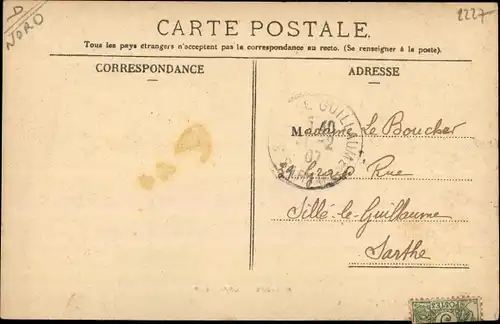 D
NORD
2227
CARTE POSTALE.
Tous les pays étrangers n'acceptent pas la correspondance au recto. (Se renseigner à la poste).
CORRESPONDANCE
ADRESSE
LE GUILLAUME
10
02
Madame Le Boucher
Grand' Rue
Sillé-le-Guillaume
Sarthe